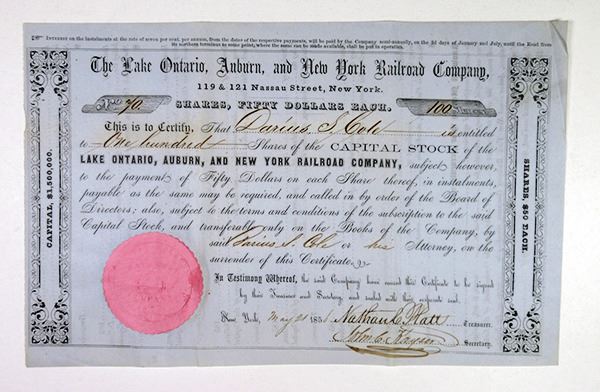 INTEREST on the instalments at the rate of SEVEN per cent. per annum, from the dates of the respective payments, will be paid by the Company semi-annually, on the 2d days of January and July, until the Road from
its northern terminus to some point, where the same can be made available, shall be put in operation.
The Lake Ontario, Auburn, and New York Railroad Company,
119 & 121 Nassau Street, New York.
SHARES, FIFTY DOLLARS EACH.
No 70
100 Shares
This is to Certify, That Darius S. Cole is entitled
to One hundred Shares of the CAPITAL STOCK of the
LAKE ONTARIO, AUBURN, AND NEW YORK RAILROAD COMPANY, subject however,
to the payment of Fifty Dollars on each Share thereof, in instalments,
payable as the same may be required, and called in by order of the Board of
Directors; also, subject to the terms and conditions of the subscription to the said
Capital Stock, and transferable only on the Books of the Company, by
said Darius S. Cole or his Attorney, on the
surrender of this Certificate.
In Testimony Whereof, the said Company have caused this Certificate to be signed
by their Treasurer and Secretary, and sealed with their corporate seal.
New York, May 21 185
Nathan C. Platt Treasurer.
Secretary.
CAPITAL, $1,500,000.
SHARES, $50 EACH.